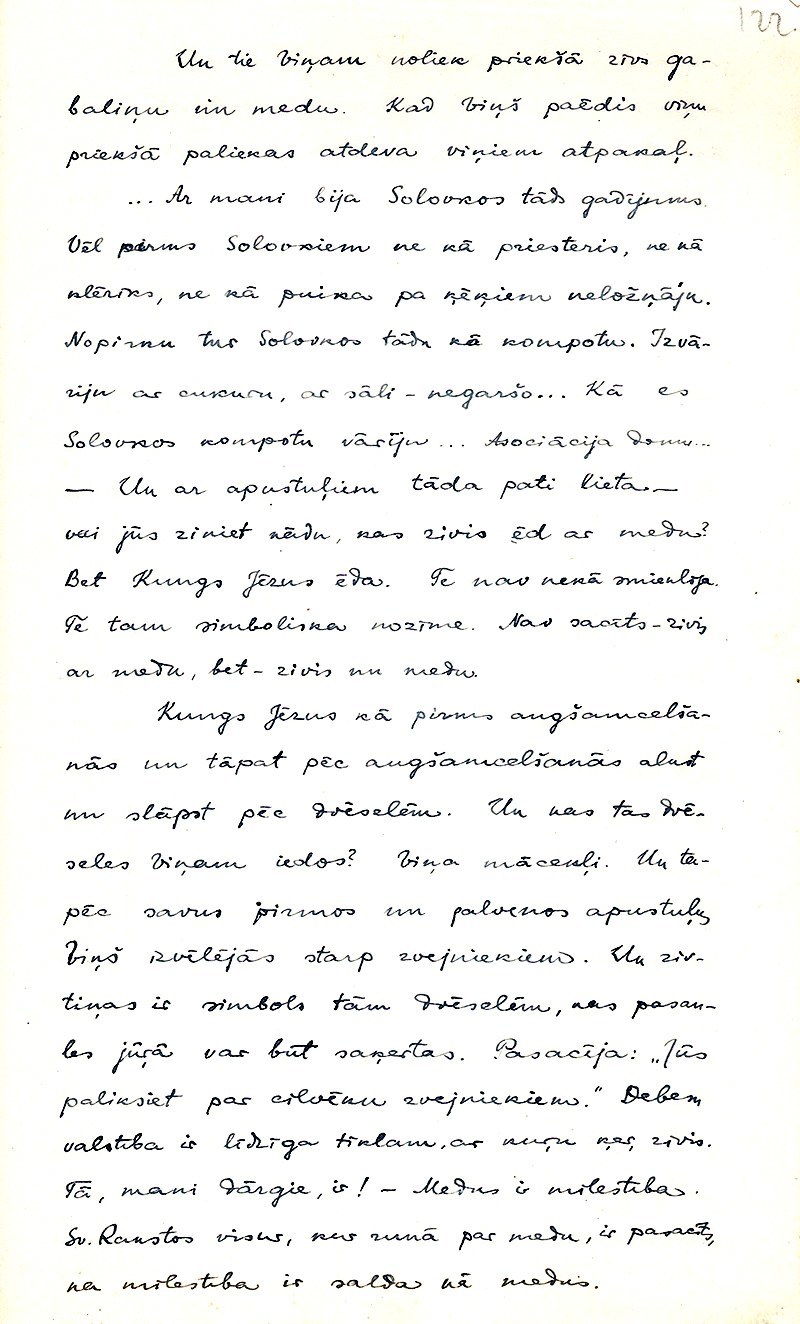 122.
Un tie Viņam noliek priekšā zivs ga-
baliņu un medu. Kad Viņš paēdis viņu
priekšā paliekas atdeva viņiem atpakaļ.
... Ar mani bija Solovkos tāds gadījums.
Vēl pirms Solovkiem ne kā priesteris, ne kā
klēriks, ne kā puika pa ķēķiem neložņāju.
Nopirku tur Solovkos tādu kā kompotu. Izvā-
rīju ar cukuru, ar sāli - negaršo... Kā es
Solovkos kompotu vārīju ... Asociācija domu...
— Un ar apustuļiem tāda pati lieta —
vai jūs ziniet kādu, kas zivis ēd ar medu?
Bet Kungs Jēzus ēda. Te nav nekā smieklīga.
Te tam simboliska nozīme. Nav sacīts - zivis
ar medu, bet - zivis un medu.
Kungs Jēzus kā pirms augšamcelša-
nās un tāpat pēc augšamcelšanās alkst
un slāpst pēc dvēselēm. Un kas tas dvē-
seles Viņam iedos? Viņa mācekļi. Un tā-
pēc savus pirmos un galvenos apustuļus
Viņš izvēlējās starp zvejniekiem. Un ziv-
tiņas ir simbols tām dvēselēm, kas pasau-
les jūŗā var būt saķertas. Pasacīja: „Jūs
paliksiet par cilvēku zvejniekiem." Debesu
valstība ir līdzīga tīklam, ar kuŗu ķeŗ zivis.
Tā, mani dārgie, ir! - Medus ir mīlestība.
Sv. Rakstos visur, kur runā par medu, ir pasacīts,
ka mīlestība ir salda kā medus.